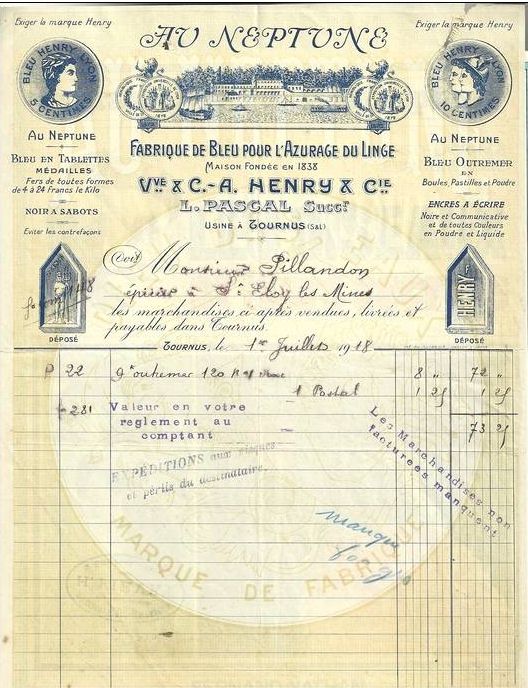 Exiger la marque Henry
Exiger la marque Henry
AU NEPTUNE
BLEU HENRY LYON
5 CENTIMES
BLEU HENRY LYON
10 CENTIMES
FABRIQUE DE BLEU POUR L'AZURAGE DU LINGE
MAISON FONDÉE EN 1838
Vve & C.-A. HENRY & Cie
L. PASCAL Succr
USINE À TOURNUS (S&L)
AU NEPTUNE
BLEU EN TABLETTES
MÉDAILLES
Fers de toutes formes
de 4 à 24 Francs le Kilo
NOIR A SABOTS
Eviter les contrefaçons
DÉPOSÉ
AU NEPTUNE
BLEU OUTREMER
EN
Boules, Pastilles et Poudre
ENCRES A ÉCRIRE
Noire et Communicative
et de toutes Couleurs
en Poudre et Liquide
HENRY
DÉPOSÉ
Doit Monsieur Pillandon
épicier à St Eloy les Mines
les marchandises ci après vendues, livrées et
payables dans Tournus.
TOURNUS, le 1er Juillet 1918
P 22 120 8 " 72 "
1 Postal 1 25 1 25
281 73 25
Valeur en votre
reglement au
comptant
EXPÉDITIONS aux risques
et périls du destinataire.
Les Marchandises non
facturées manquent
manque
MARQUE DE FABRIQUE